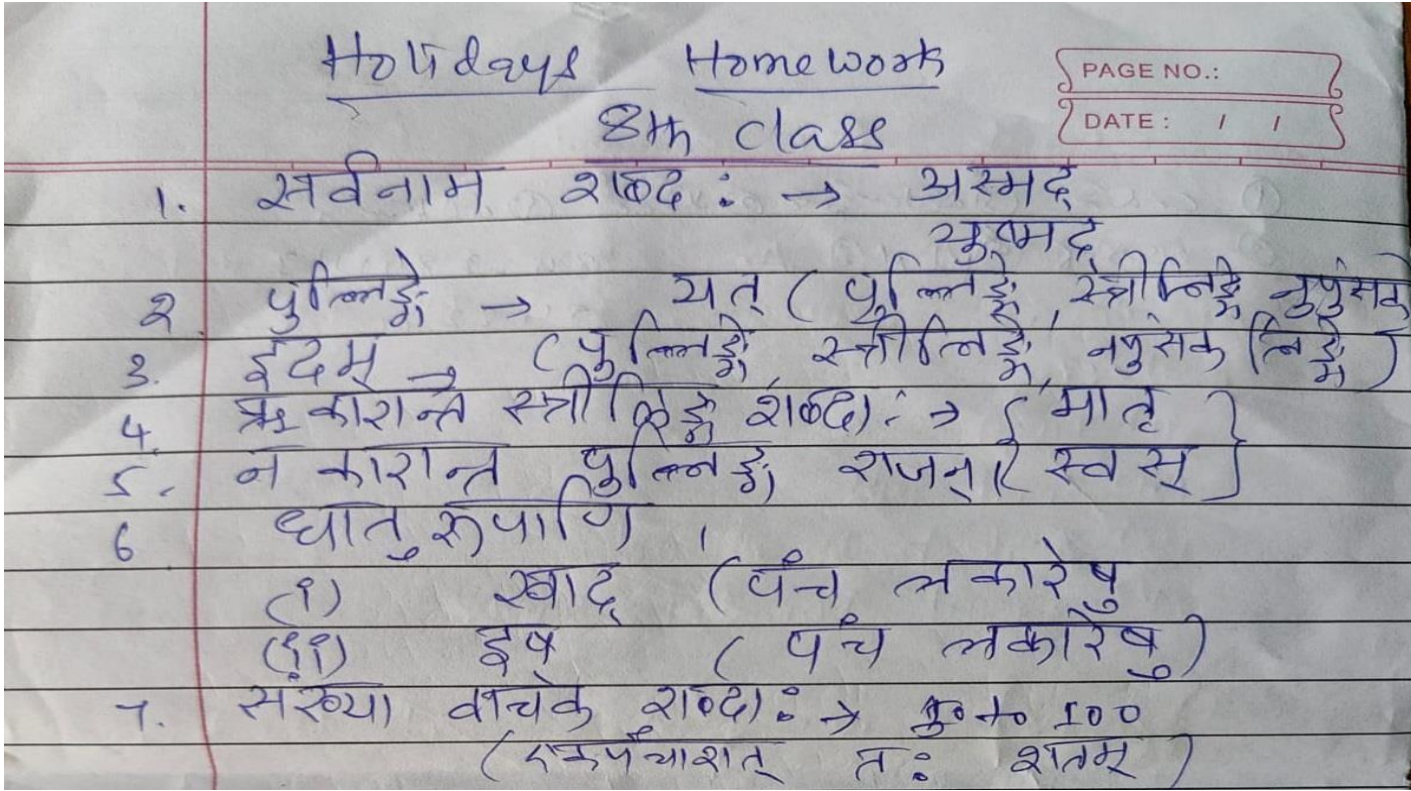 Holidays Homework
PAGE NO.:
8th class
DATE : / /
1. सर्वनाम शब्द : → अस्मद्
युष्मद्
2 पुल्लिङ्गे → यत् ( पुल्लिङ्गे, स्त्रीलिङ्गे नपुंसक
3. इदम् → (पुल्लिङ्गे, स्त्रीलिङ्गे, नपुंसक लिङ्गे)
4. ऋकारान्त स्त्रीलिङ्गे शब्दा: → { मातृ }
5. न कारान्त पुल्लिङ्गे, राजन् । { स्वसृ }
6 धातु रूपाणि ।
(१) खाद् (पंच लकारेषु
(११) इष् ( पंच लकारेषु )
7. संख्या वाचक शब्दा: → 50 to 100
(एकपंचाशत् त: शतम् )